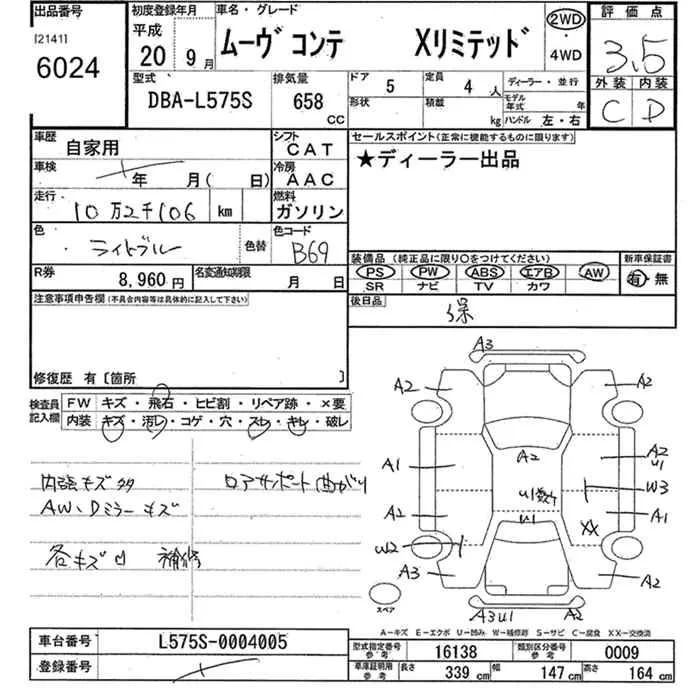 出品番号
[2141]
6024
初度登録年月
平成
20 9月
車名・グレード
ムーヴ コンテ Xリミテッド
2WD
・
4WD
評価点
3.5
外装 内装
C D
型式
DBA-L575S
排気量
658
CC
ドア 5
定員 4 人
ディーラー・並行
形状
積載 kg
モデル年式 年
ハンドル 左・右
車歴
自家用
シフト
CAT
車検
年 月( 日)
冷房
AAC
走行
10万2千106 km
燃料
ガソリン
色
ライトブルー
色替
色コード
B69
R券
8,960円
名変通知期限
月 日
セールスポイント(正常に機能するものに限ります)
★ディーラー出品
装備品 (純正品に限り○をつけてください)
新車保証書
PS PW ABS エアB AW
SR ナビ TV カワ
有・無
後日品
保
注意事項申告欄(不具合内容等は具体的に記入して下さい)
修復歴 有〔箇所 〕
検査員記入欄
FW キズ・飛石・ヒビ割・リペア跡・×要
内装 キズ・汚レ・コゲ・穴・スレ・キレ・破レ
内張キズ多
AW、Dミラーキズ
各キズ凹 補修
ロアサポート曲がり
A3
A2 A2
A1 A2 A2 U1
W3
U1数ケ
A2 U1 A1
W2 XX
A3 A2
スペア
A3U1 A2
A-キズ E-エクボ U-凹み W-補修跡 S-サビ C-腐食 XX-交換済
車台番号
L575S-0004005
登録番号
型式指定番号 参考
16138
類別区分番号 参考
0009
車庫証明用 参考
長さ 339 cm
幅 147 cm
高さ 164 cm